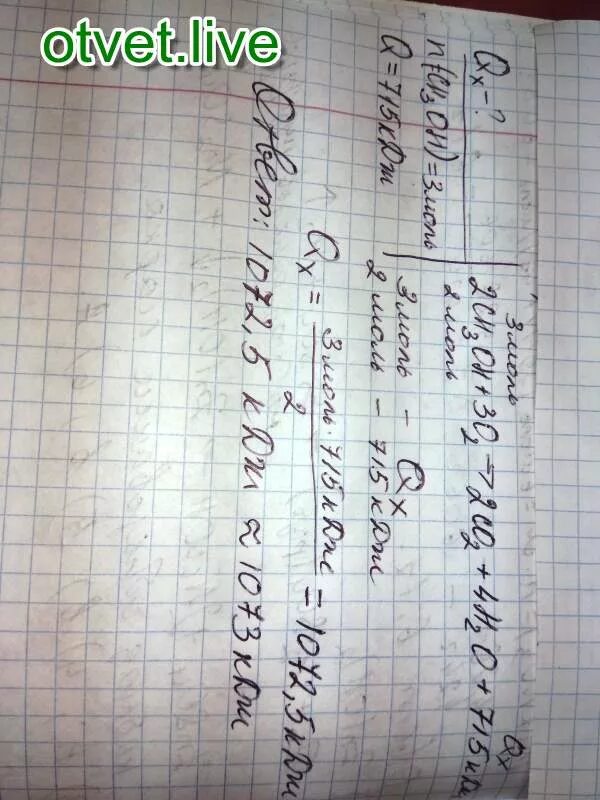 otvet.live
Qx - ?
n(CH3OH) = 3 моль
Q = 715 кДж
3 моль Qx
2CH3OH + 3O2 → 2CO2 + 4H2O + 715 кДж
2 моль
3 моль - Qx
2 моль - 715 кДж
Qx = 3 моль · 715 кДж / 2 = 1072,5 кДж
Ответ: 1072,5 кДж ≈ 1073 кДж